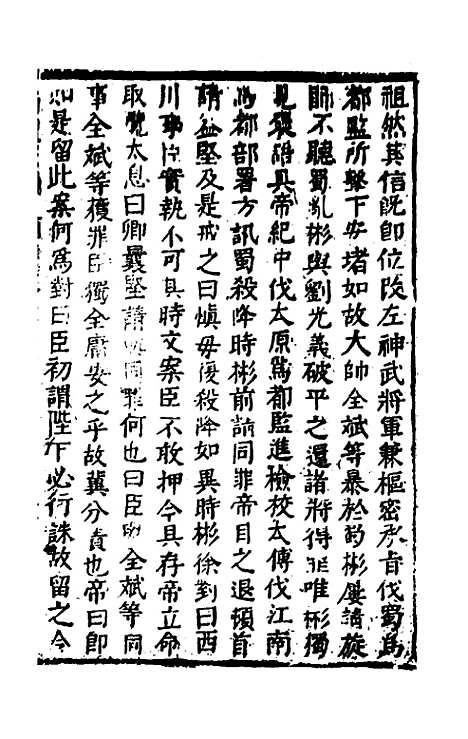 祖然其信既即位改左神武將軍兼樞密承旨伐蜀爲
都監所擊下安堵如故大帥全斌等暴於蜀彬屢請旋
師不聽蜀亂彬與劉光義破平之還諸將得罪唯彬獨
見褒語具帝紀中伐太原爲都監進檢校太傅伐江南
爲都部署方訊蜀殺降時彬前請同罪帝目之退頓首
請益堅及是戒之曰愼毋復殺降如異時彬徐對曰西
川事臣實執不可具時文案臣不敢押今具存帝立命
取覽太息曰卿曩堅請 同罪何也曰臣與全斌等同
事全斌等獲罪臣獨全庸安之乎故冀分責也帝曰卽
如是留此案何爲對曰臣初謂陛下必行誅故留之今